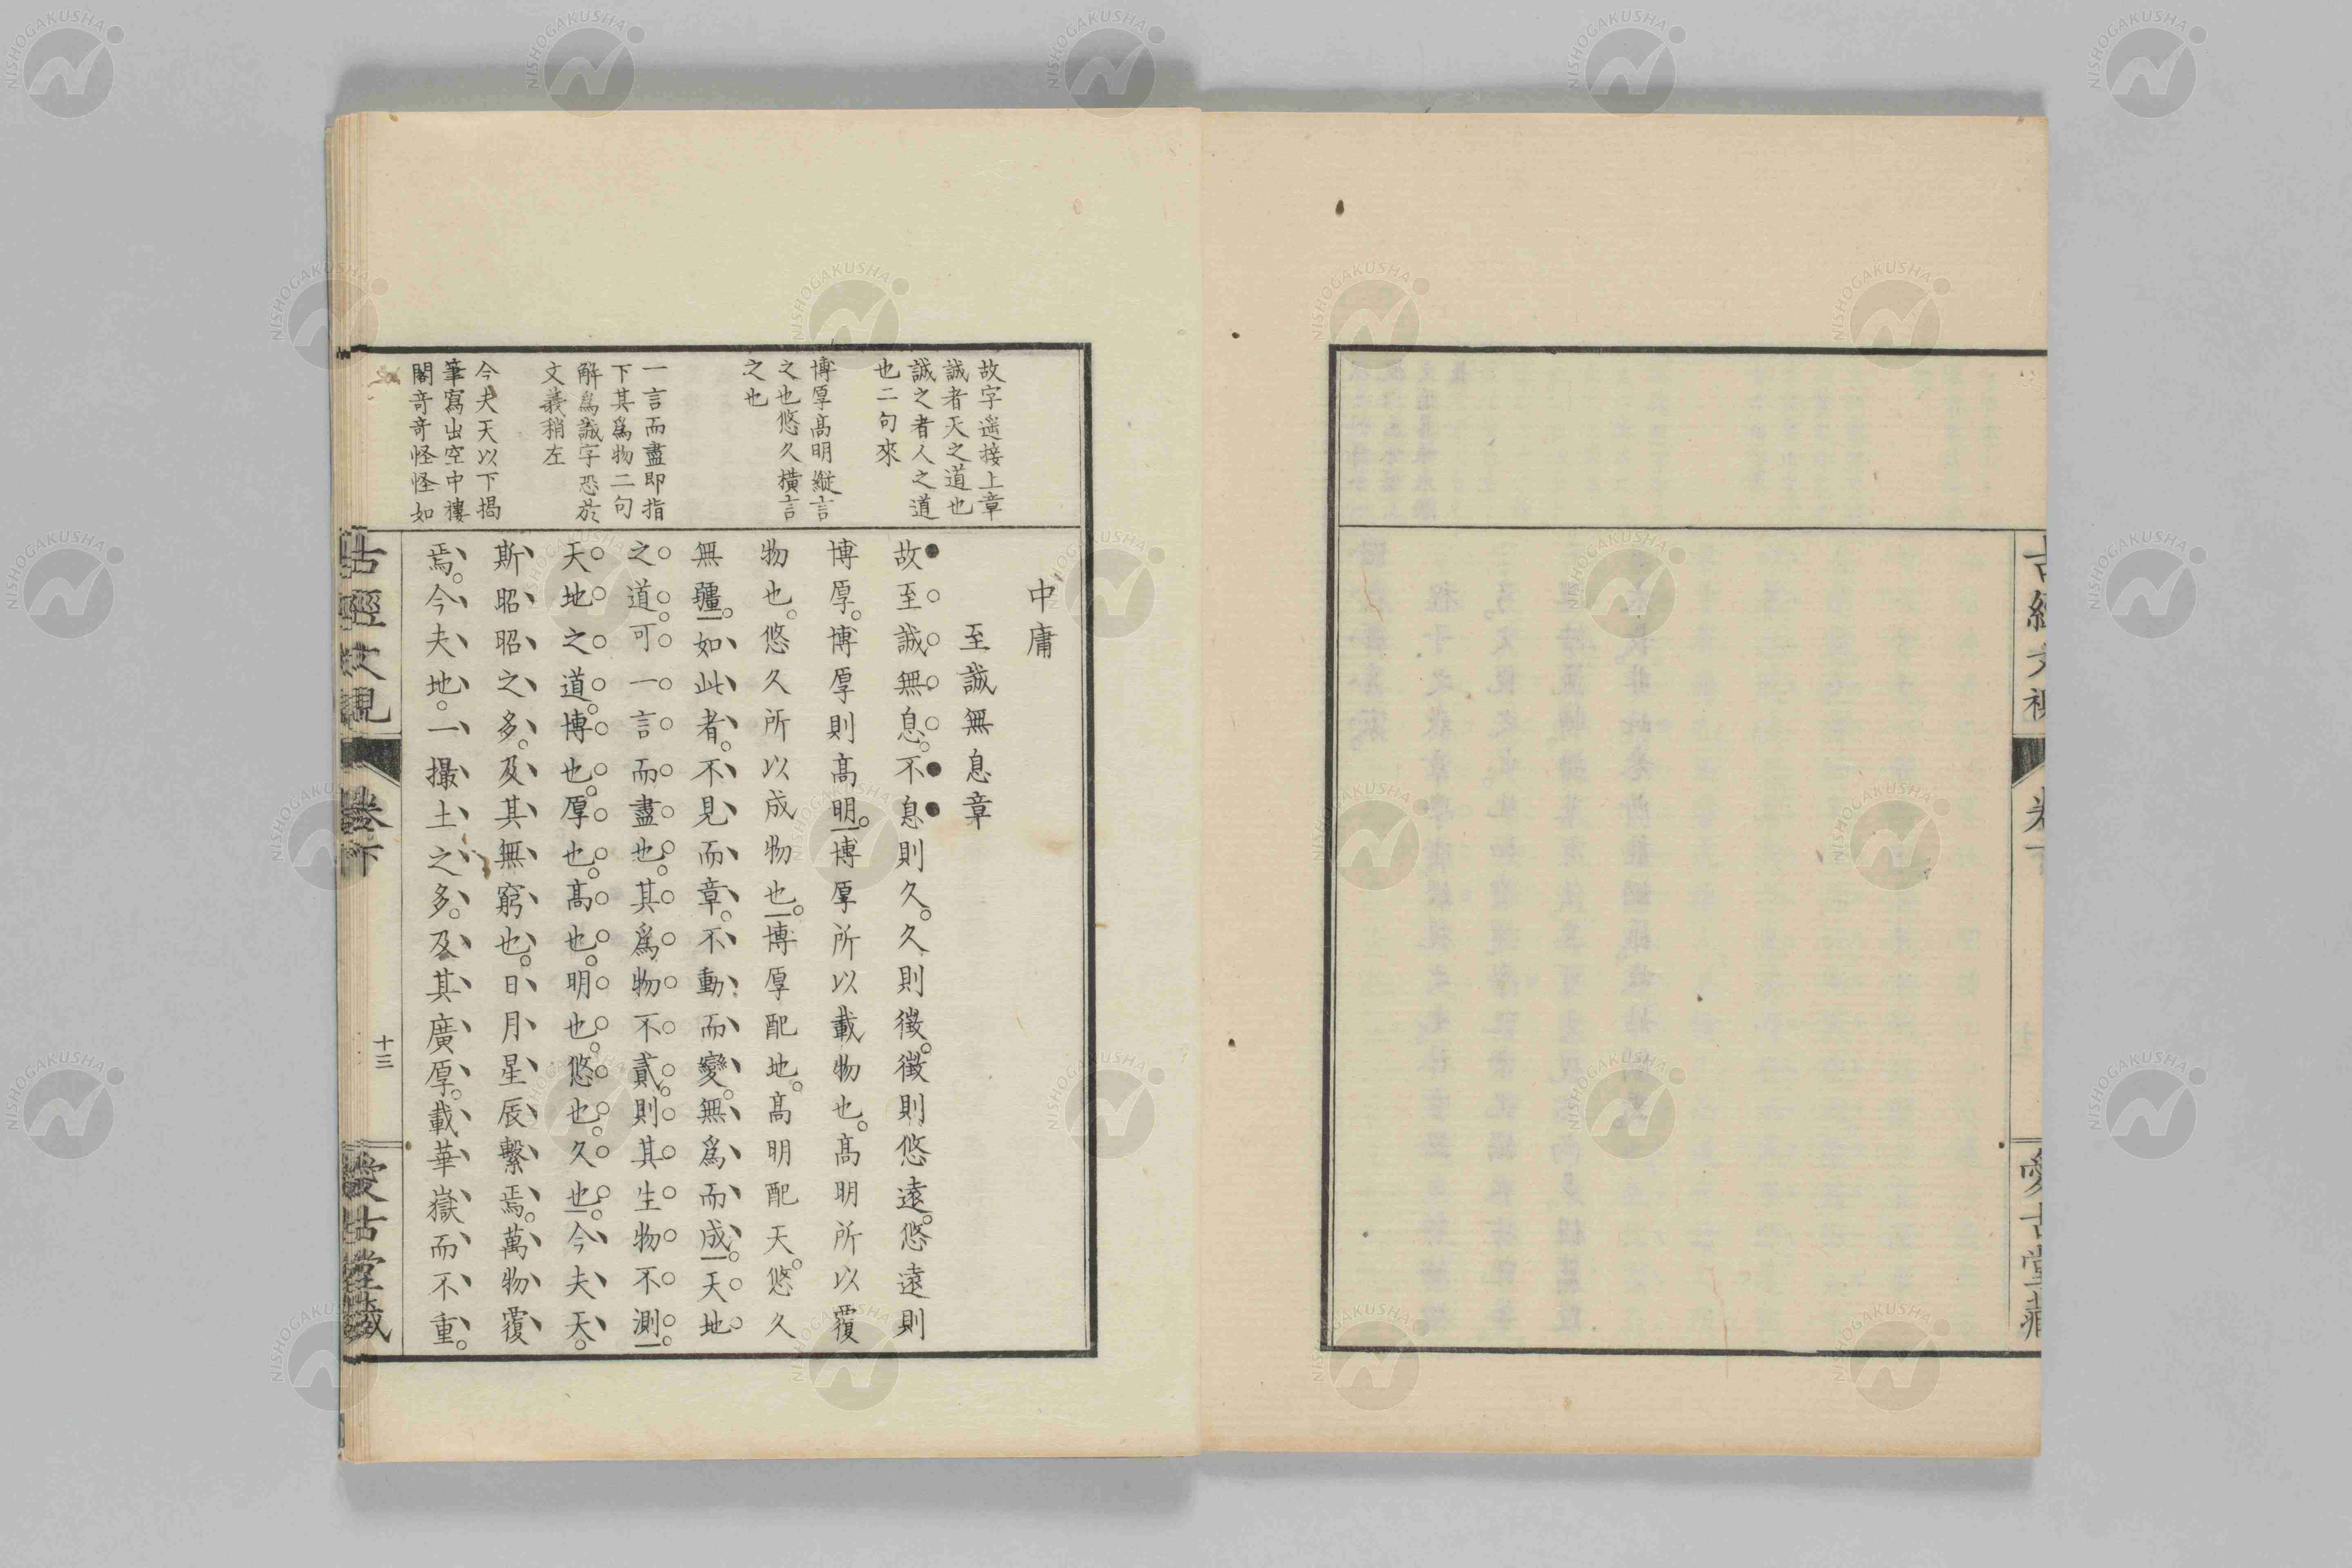 中庸
至誠無息章
故至誠無息。不息則久。久則徵。徵則悠遠。悠遠則
博厚。博厚則高明。博厚所以載物也。高明所以覆
物也。悠久所以成物也。博厚配地。高明配天。悠久
無疆。如此者。不見而章。不動而變。無爲而成。天地
之道。可一言而盡也。其爲物不貳。則其生物不測。
天地之道。博也。厚也。高也。明也。悠也。久也。今夫天。
斯昭昭之多。及其無窮也。日月星辰繫焉。萬物覆
焉。今夫地。一撮土之多。及其廣厚。載華嶽而不重。
故字遥接上章
誠者天之道也
誠之者人之道
也二句來
博厚高明縱言
之也悠久橫言
之也
一言而盡即指
下其爲物二句
解爲誠字恐於
文義稍左
今夫天以下揭
筆寫出空中樓
閣奇奇怪怪如
卷下
十三
愛古堂藏
NISHOGAKUSHA